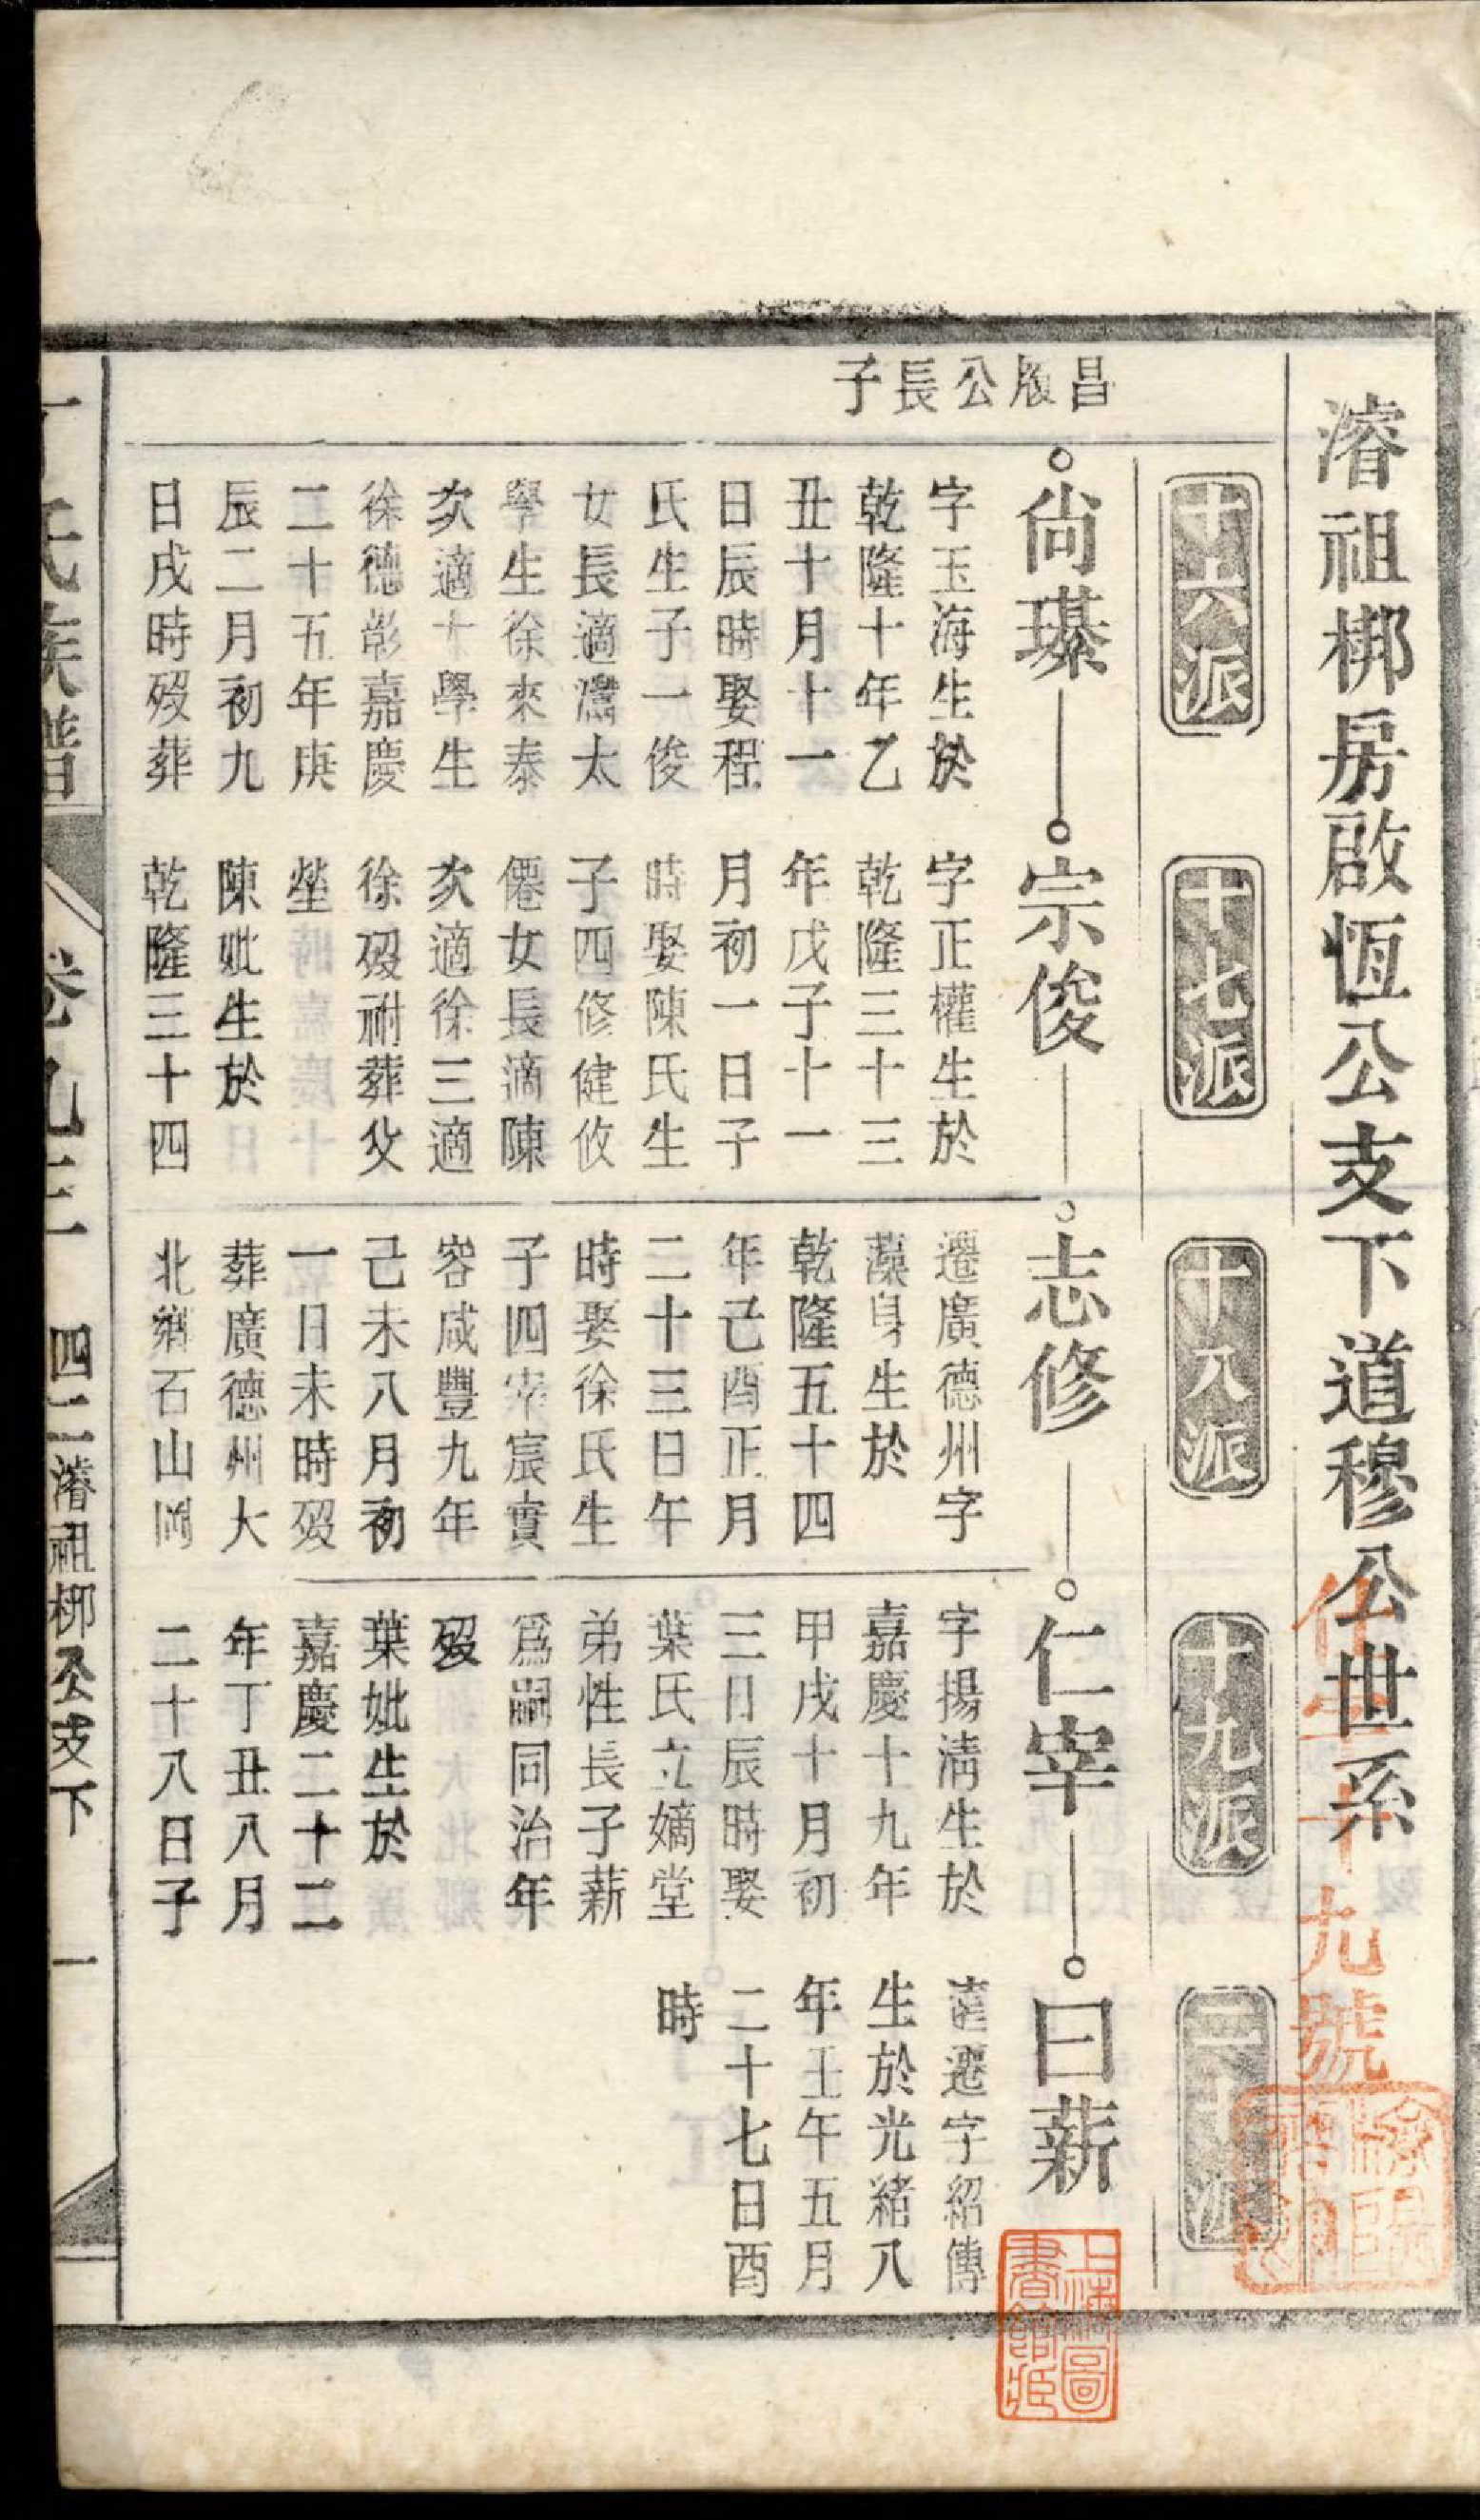 濬祖梆房啟恆公支下道穆公世系
十六派
十七派
十八派
十九派
二十派
昌殿公長子
尙瑧
字玉海生於
乾隆十年乙
丑十月十一
日辰時娶程
氏生子一俊
女長適灊太
學生徐來泰
次適十學生
徐德彰嘉慶
二十五年庚
辰二月初九
日戌時歿葬
宗俊
字正權生於
乾隆三十三
年戊子十一
月初一日子
時娶陳氏生
子四修健攸
僊女長適陳
次適徐三適
徐歿祔葬父
塋
陳妣生於
乾隆三十四
志修
遷廣德州字
藻身生於
乾隆五十四
年己酉正月
二十三日午
時娶徐氏生
子四宰宸實
容咸豐九年
己未八月初
一日未時歿
葬廣德州大
北鄉石山岡
仁宰
字揚淸生於
嘉慶十九年
甲戌十月初
三日辰時娶
葉氏立嫡堂
弟性長子薪
爲嗣同治年
歿
葉妣生於
嘉慶二十二
年丁丑八月
二十八日子
曰薪
達選字紹傳
生於光緖八
年壬午五月
二十七日酉
時
丁氏族譜
卷九三
四二濬祖梆公支下
一
仁字十九號
上海圖書館藏